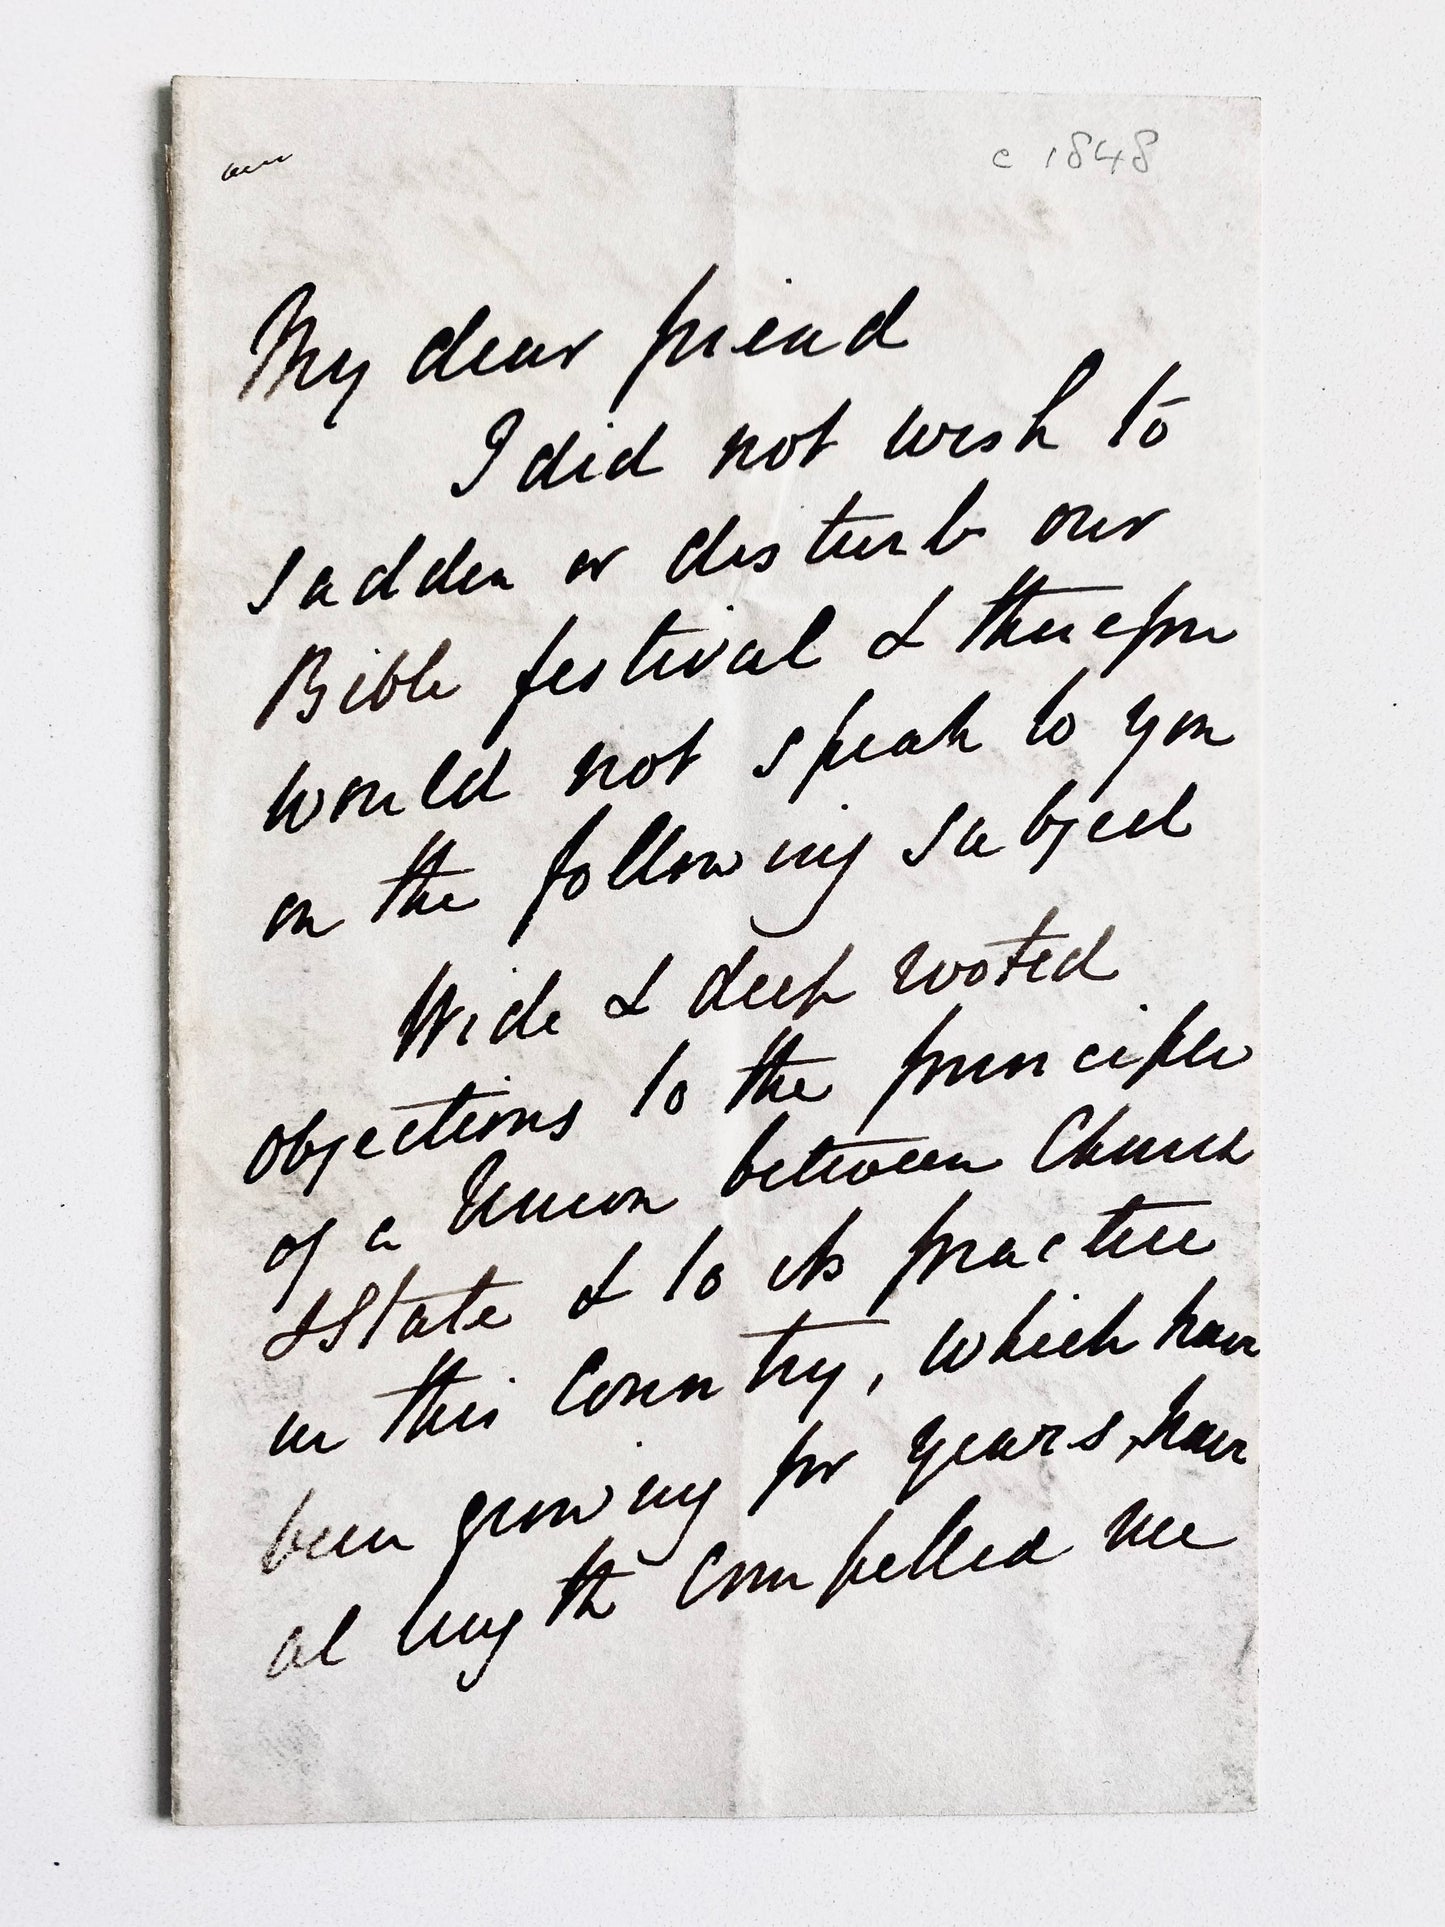 c 1848
My dear friend
I did not wish to
sadden or disturb our
Bible festival & therefore
would not speak to you
on the following subject
Wide & deep rooted
objections to the principles
of a Union between Church
& State & to its practice
in this Country, which have
been growing for years, have
at length compelled me